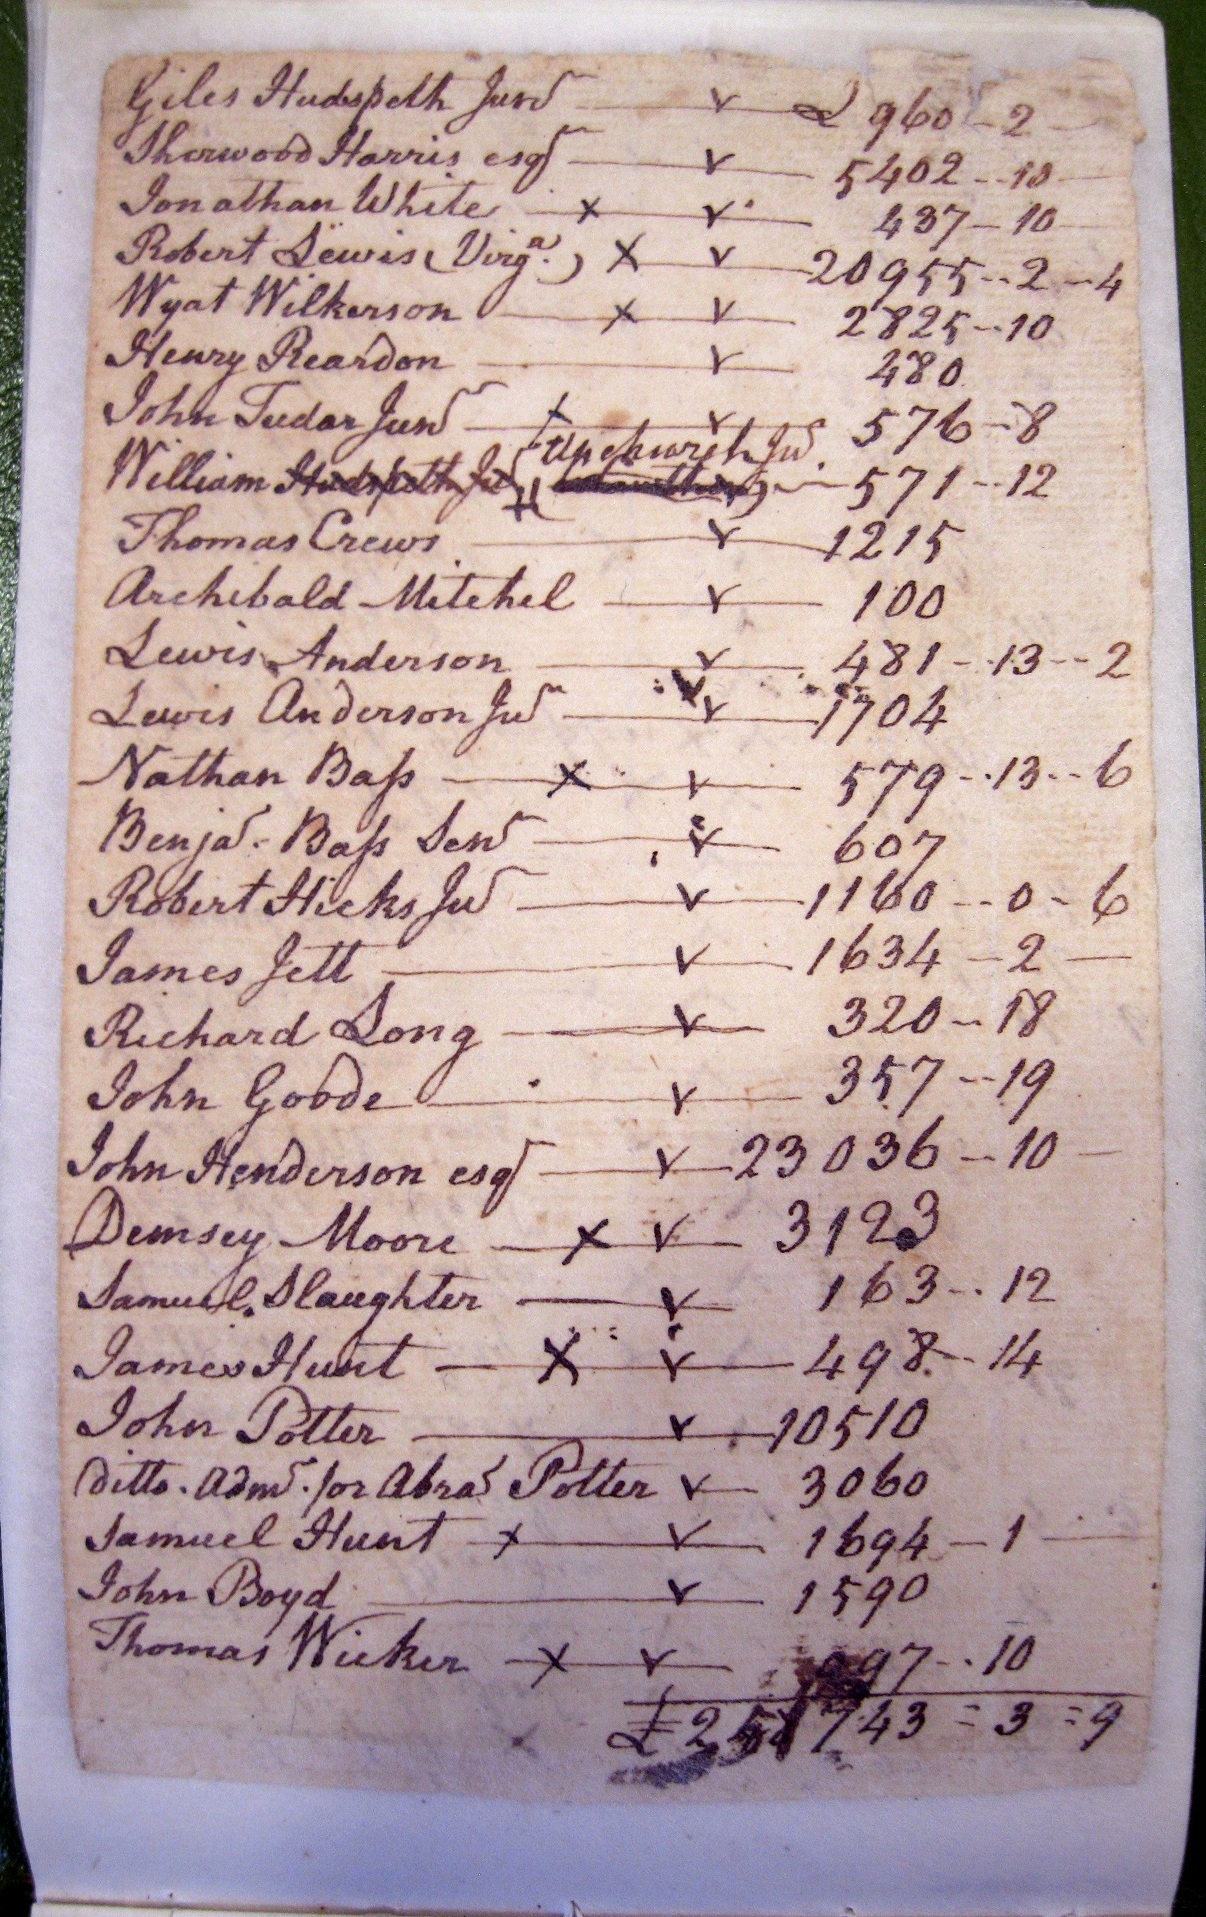 Giles Hudspeth Junr v £ 960 - 2 -
Sherwood Harris esqr v 5402 -- 10
Jonathan White x v 437 - 10
Robert Lewis (Virga.) x v 20955 -- 2 -- 4
Wyat Wilkerson x v 2825 -- 10
Henry Reardon v 480
John Tudor Junr x v 576 - 8
Upchurch Jur
William Hudspeth Jur 571 -- 12
Thomas Crews v 1215
Archibald Mitchel v 100
Lewis Anderson v 481 -- 13 -- 2
Lewis Anderson Jur v 1704
Nathan Baſs x v 579 -- 13 -- 6
Benja. Baſs Senr v 607
Robert Hicks Jur v 1160 -- 0 - 6
James Jett v 1634 - 2 -
Richard Long v 320 -- 18
John Goode v 357 -- 19
John Henderson esqr v 23036 -- 10 -
Demsey Moore x v 3123
Samuel Slaughter v 163 -- 12
James Hunt x v 498 -- 14
John Potter v 10510
Ditto. Admr. for Abra Potter v 3060
Samuel Hunt x v 1694 - 1
John Boyd v 1590
Thomas Wicker x v 97 -- 10
£ 743 = 3 = 9